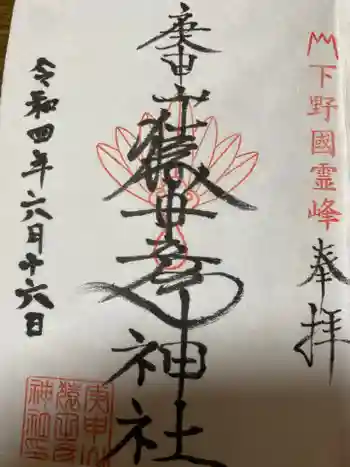 下野國霊峰 奉拝
庚申山猿田彦神社
令和四年六月十六日
庚申山
猿田彦
神社印